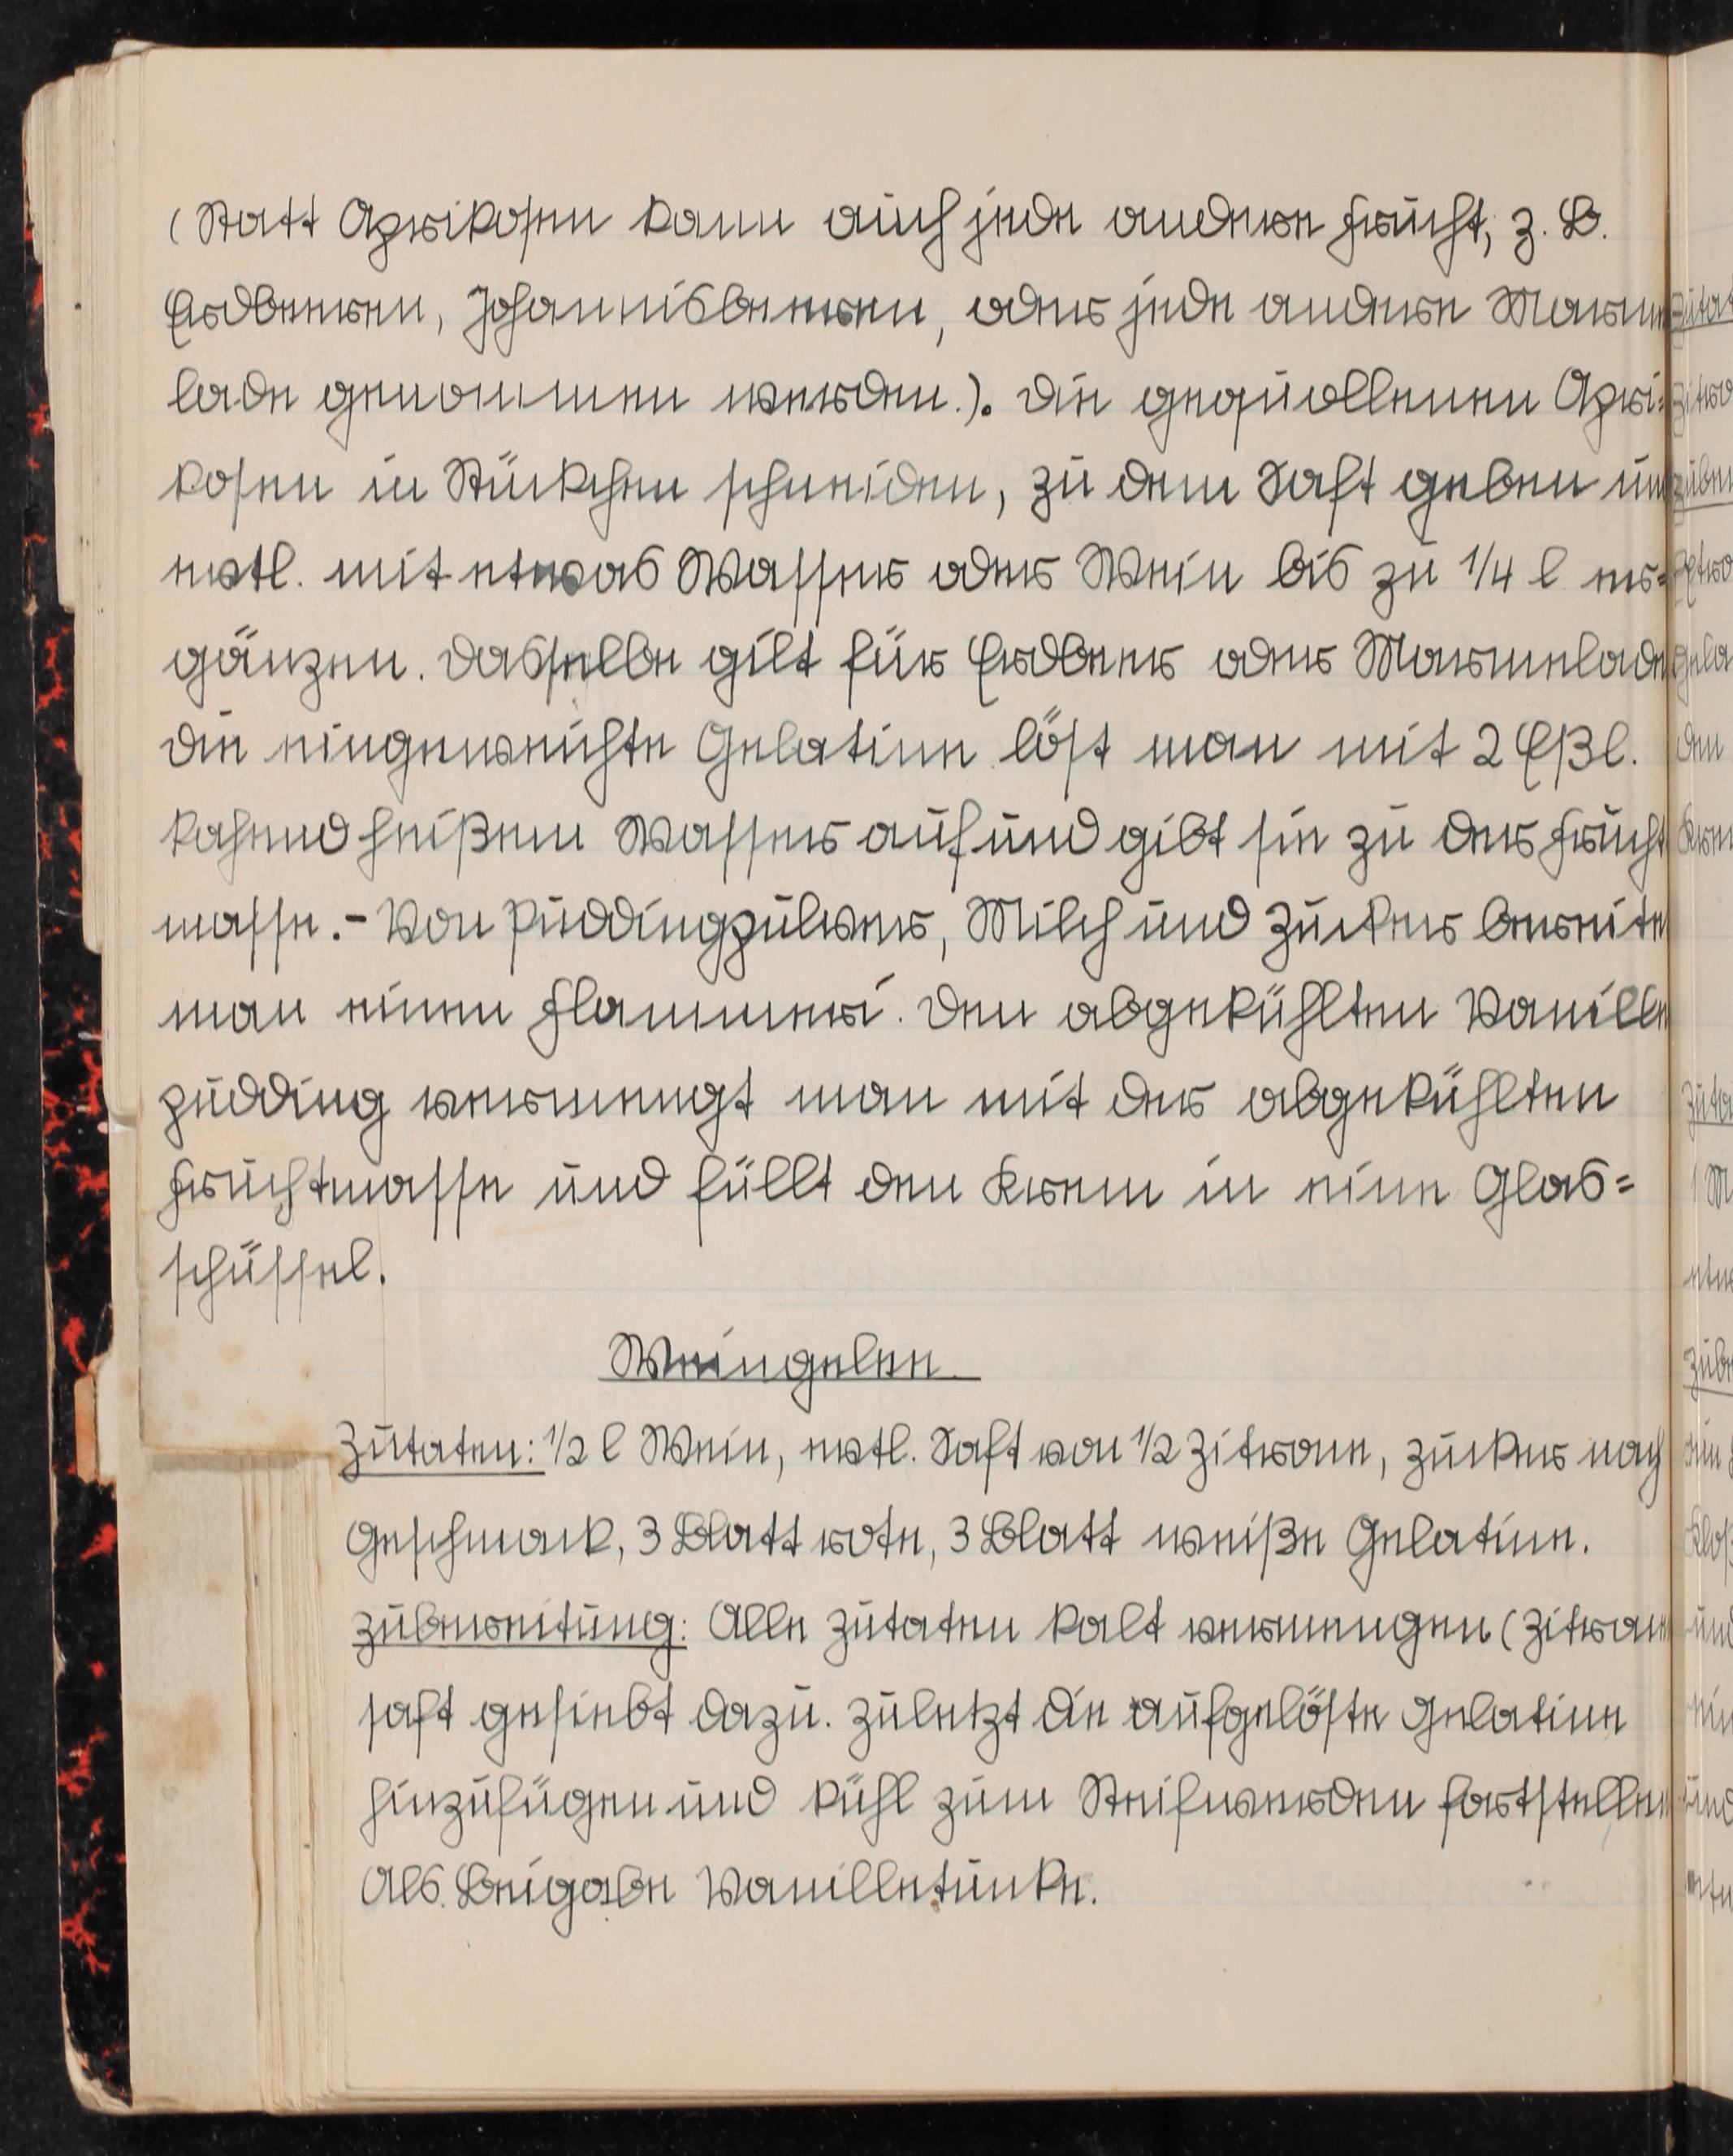 (Statt Aprikosen kann auch jede andere Frucht, z. B.
Erdbeeren, Johannisbeeren, oder jede andere Marme
lade genommen werden.). Die gequollenen Apri=
kosen in Stückchen schneiden, zu dem Saft geben un
evtl. mit etwas Wasser oder Wein bis zu 1/4 l er=
gänzen. Dasselbe gilt für Erdbeer oder Marmelade
Die eingeweichte Gelatine löst man mit 2 Eßl.
kochend heißem Wasser auf und gibt sie zu der Frucht
masse. - Von Puddingpulver, Milch und Zucker bereite
man einen Flammeri. Den abgekühlten Vanille
pudding vermengt man mit der abgekühlten
Fruchtmasse und füllt den Krem in eine Glas=
schüssel.
Weingelee.
Zutaten: 1/2 l Wein, evtl. Saft von 1/2 Zitrone, Zucker nach
Geschmack, 3 Blatt rote, 3 Blatt weiße Gelatine.
Zubereitung: Alle Zutaten kalt vermengen (Zitrone
saft gesiebt dazu. Zuletzt die aufgelöste Gelatine
hinzufügen und kühl zum Steifwerden fortstellen
Als Beigabe Vanilletunke.